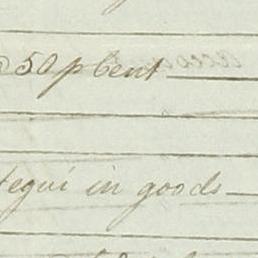 @ 50 p Cent
tegui in goods